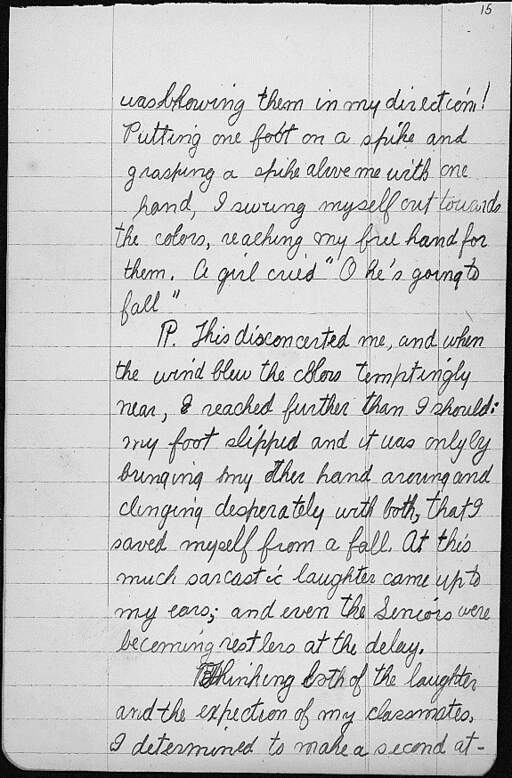 15
was blowing them in my direction!
Putting one foot on a spike and
grasping a spike above me with one
hand, I swung myself out towards
the colors, reaching my free hand for
them. A girl cried "O he's going to
fall"
P. This disconcerted me, and when
the wind blew the colors temptingly
near, I reached further than I should:
my foot slipped and it was only by
bringing my other hand around and
clinging desperately with both, that I
saved myself from a fall. At this
much sarcastic laughter came up to
my ears; and even the Seniors were
becoming restless at the delay.
Thinking both of the laughter
and the expection of my classmates,
I determined to make a second at-